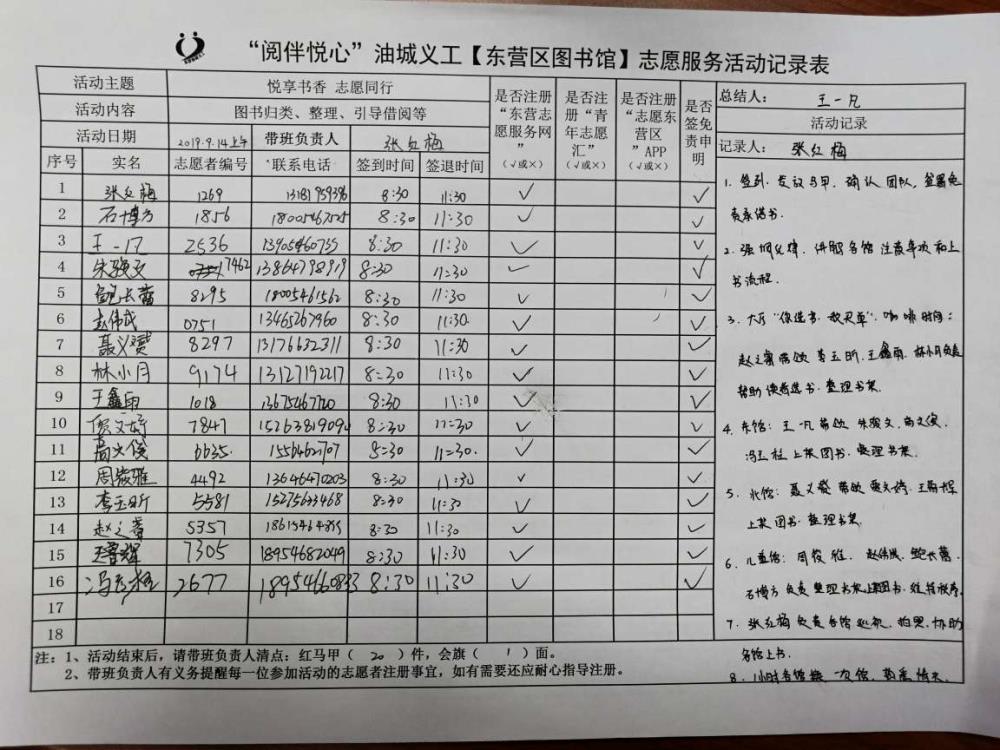 “阅伴悦心”油城义工【东营区图书馆】志愿服务活动记录表
活动主题 悦享书香 志愿同行
活动内容 图书归类、整理、引导借阅等
活动日期 2019.9.14上午 带班负责人 张红梅
序号 实名 志愿者编号 联系电话 签到时间 签退时间 是否注册“东营志愿服务网”（√或×） 是否注册“青年志愿汇”（√或×） 是否注册“志愿东营区”APP（√或×） 是否签免责申明
1 张红梅 1269 8:30 11:30 √ √
2 石博方 1856 18005467525 8:30 11:30 √ √
3 王一凡 2536 13905460755 8:30 11:30 √ √
4 朱骏文 7462 13864798919 8:30 11:30 √ √
5 鲍长蕾 8295 18005461562 8:30 11:30 √ √
6 赵伟斌 0751 13465267960 8:30 11:30 √ √
7 聂义赟 8297 13176632311 8:30 11:30 √ √
8 林小月 9174 13127192217 8:30 11:30 √ √
9 王鑫雨 1018 13675467720 8:30 11:30 √ √
10 7847 15263819094 8:30 11:30 √ √
11 高文俊 6635 8:30 11:30 √ √
12 周筱雅 4492 13646470203 8:30 11:30 √ √
13 李玉昕 5581 15275633468 8:30 11:30 √ √
14 赵之睿 5357 8:30 11:30 √ √
15 7305 18954682049 8:30 11:30 √ √
16 2677 8:30 11:30 √ √
17
18
注：1、活动结束后，请带班负责人清点：红马甲（20）件，会旗（1）面。
2、带班负责人有义务提醒每一位参加活动的志愿者注册事宜，如有需要还应耐心指导注册。
总结人： 王一凡
活动记录
记录人： 张红梅
1. 签到. 发放马甲. 确认团队, 签署免
责承诺书.
2. 强调纪律. 讲解各馆注意事项和上
书流程.
3. 大厅“你选书·我买单”. 咖啡时间:
赵之睿 李玉昕. 王鑫雨. 林小月负责
帮助读者选书. 整理书架.
4. 东馆: 王一凡 朱骏文. 高文俊.
上架图书. 整理书架.
5. 北馆: 聂义赟
上架图书. 整理书架.
6. 儿童馆: 周筱雅. 赵伟斌. 鲍长蕾.
石博方负责整理书架上架图书. 维持秩序.
7. 张红梅负责各馆巡视. 拍照. 协助
各馆上书.
8. 1小时各馆换一次馆.